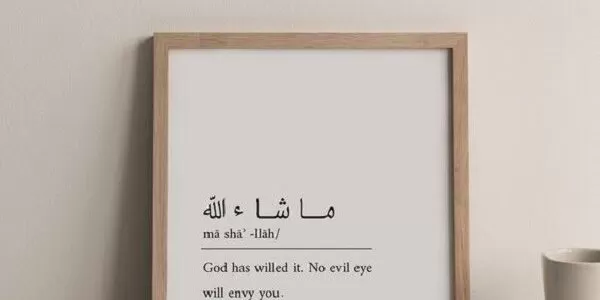 ما شاء الله
mā shā’ -llāh/
God has willed it. No evil eye
will envy you.